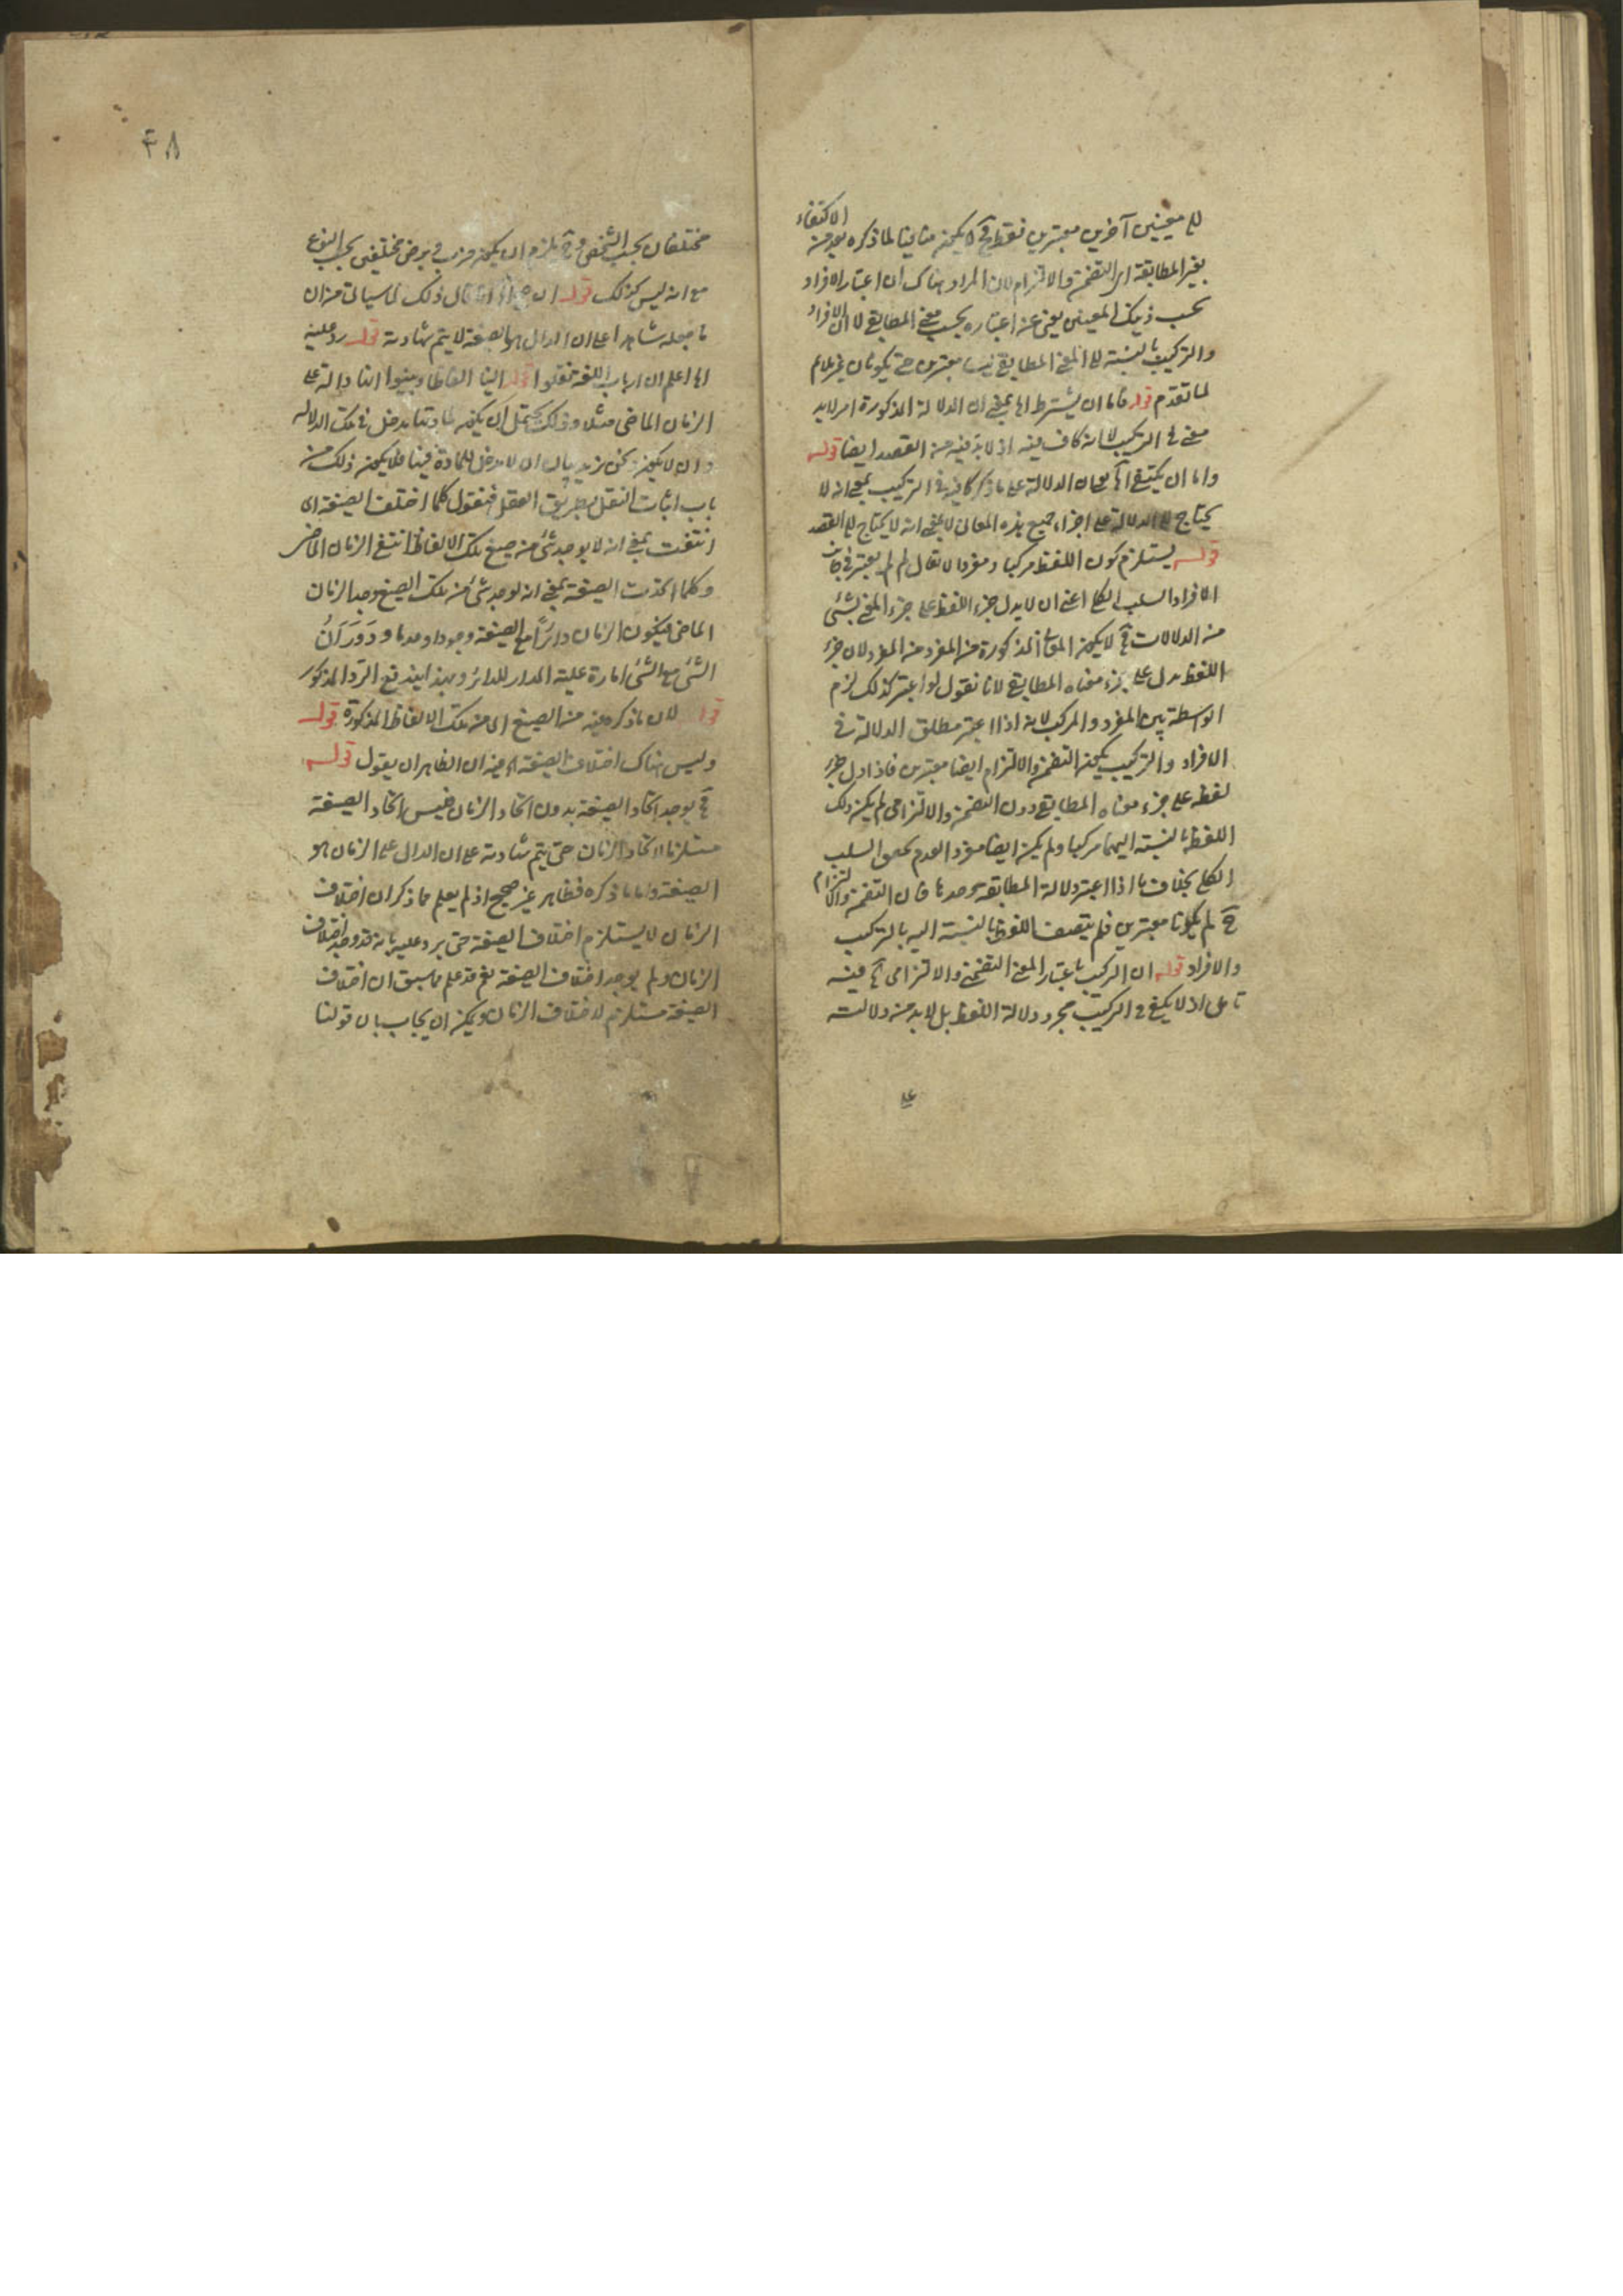 الى معنيين آخرين معتبرين فقط وح لا يكون منافيا لما ذكره بعد من الاكتفاء
بغير المطابقة اى التضمن والالتزام لان المراد هناك ان اعتبار الافراد
بحسب ذينك المعنيين يغنى عن اعتباره بحسب معنى المطابقى لا ان الافراد
والتركيب بالنسبة الى المعنى المطابقى ليسا معتبرين حتى يكونان غير ملائم
لما تقدم قوله فاما ان يشترط اه بمعنى ان الدلالة المذكورة امر لابد
منه فى التركيب لا انه كاف فيه اذ لابد فيه من القصد ايضا قوله
واما ان يكتفى اه بمعنى ان الدلالة على ما ذكر كافية فى التركيب بمعنى انه لا
يحتاج الى الدلالة على اجزاء جميع هذه المعانى لا بمعنى انه لا يحتاج الى القصد
قوله يستلزم كون اللفظ مركبا ومفردا لا يقال لم لم يعتبر فى جانب
الافراد السلب الكلى اعنى ان لا يدل جزء اللفظ على جزء المعنى بشئ
من الدلالات فح لا يكون المذكورة من المفرد لان جزء
اللفظ يدل على جزء معناه المطابقى لانا نقول لو اعتبر كذلك لزم
الواسطة بين المفرد والمركب لانه اذا اعتبر مطلق الدلالة فى
الافراد والتركيب يكون التضمن والالتزام ايضا معتبرين فاذا دل جزء
لفظه على جزء معناه المطابقى دون التضمنى والالتزامى لم يكن ذلك
اللفظ بالنسبة اليهما مركبا ولم يكن ايضا مفردا لعدم تحقق السلب
الكلى بخلاف ما اذا اعتبر دلالة المطابقة وحدها فان التضمن والالتزام
ح لم يكونا معتبرين فلم يتصف اللفظ بالنسبة اليه بالتركيب
والافراد قوله ان التركيب باعتبار المعنى التضمنى والالتزامى اه فيه
تامل اذ لا يكفى فى التركيب مجرد دلالة اللفظ بل لابد من دلالته
على
٤٨
مختلفان بحسب الشخص وح يلزم ان يكون مختلفين بحسب النوع
مع انه ليس كذلك قوله ان قال ذلك لما سياتى من ان
ما جعله شاهدا على ان الدال هو الصيغة لا يتم شهادته قوله رد عليه
اه اعلم ان ارباب اللغة نقلوا الينا الفاظا وبينوا انها دالة على
الزمان الماضى مثلا وذلك يحتمل ان يكون لمادتها مدخل فى تلك الدلالة
وان لا يكون ونحن نريد بيان ان لا مدخل للمادة فيها فلا يكون ذلك من
باب اثبات النقل بطريق العقل فنقول كلما اختلف الصيغة اى
انتفت بمعنى انه لا يوجد شئ من صيغ تلك الالفاظ انتفى الزمان الماضى
وكلما اتحدت الصيغة بمعنى انه يوجد شئ من تلك الصيغ وجد الزمان
الماضى فيكون الزمان دائرًا مع الصيغة وجودا وعدما ودَوَرَانُ
الشئ مع الشئ امارة علية المدار للدائر وبهذا يندفع الرد المذكور
قوله لان ما ذكره فيه من الصيغ اى من تلك الالفاظ المذكورة قوله
وليس هناك اختلاف الصيغة اه فيه ان الظاهر ان يقول قوله
فح يوجد اتحاد الصيغة بدون اتحاد الزمان فليس اتحاد الصيغة
مستلزما لاتحاد الزمان حتى يتم شهادته على ان الدال على الزمان هو
الصيغة واما ما ذكره فظاهر غير صحيح اذ لم يعلم مما ذكر ان اختلاف
الزمان لا يستلزم اختلاف الصيغة حتى يرد عليه بانه قد وجد اختلاف
الزمان ولم يوجد اختلاف الصيغة نعم قد علم مما سبق ان اختلاف
الصيغة مستلزم لاختلاف الزمان ويمكن ان يجاب بان قولنا